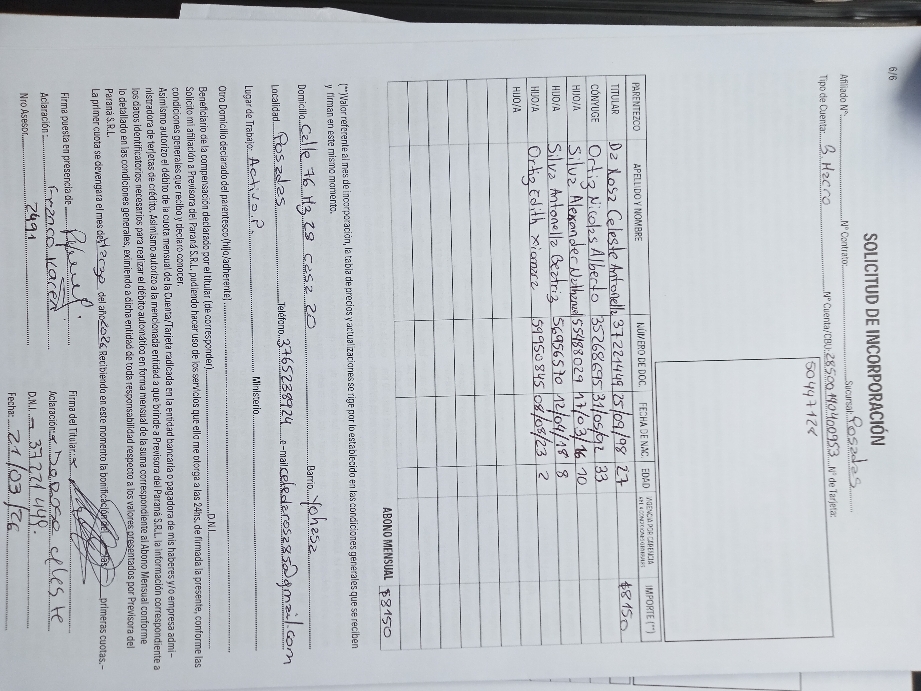 6/6
SOLICITUD DE INCORPORACIÓN
Afiliado Nº: Nº Contrato: Sucursal: Posadas
Tipo de Cuenta: B. Macro Nº Cuenta/CBU: Nº de Tarjeta:
PARENTEZCO APELLIDO Y NOMBRE NÚMERO DE DOC. FECHA DE NAC. EDAD IMPORTE (**)
TITULAR Da Rosa Celeste Antonella 37224449 25/09/98 27 $8150
CÓNYUGE Ortiz Nicolas Alberto 35268695 31/05/92 33
HIJO/A Silva Alexander Nathanael 55488029 17/03/16 10
HIJO/A Silva Antonella Beatriz 56956570 12/04/18 8
HIJO/A Ortiz Edith Xiomara 59950845 08/08/23 2
HIJO/A
ABONO MENSUAL $8150
(**)Valor referente al mes de incorporación, la tabla de precios y actualizaciones se rige por lo establecido en las condiciones generales que se reciben
y firman en este mismo momento.
Domicilio: Calle 76 Mz 28 casa 20 Barrio: Yohasa
Localidad: Posadas Teléfono: 3765238924 e-mail:
Lugar de Trabajo: Activo P. Ministerio
Otro Domicilio declarado del parentesco (hijo/adherente)
Beneficiario de la compensación declarado por el titular (de corresponder) D.N.I.
Solicito mi afiliación a Previsora del Paraná S.R.L. pudiendo hacer uso de los servicios que ello me otorga a las 24hs. de firmada la presente, conforme las
condiciones generales que recibo y declaro conocer.
Asimismo autorizo el débito de la cuota mensual de la Cuenta/Tarjeta radicada en la entidad bancaria o pagadora de mis haberes y/o empresa admi-
nistradora de tarjetas de crédito. Asimismo autorizo a la mencionada entidad a que brinde a Previsora del Paraná S.R.L. la información correspondiente a
los datos identificatorios necesarios para realizar el débito automático en forma mensual de la suma correspondiente al Abono Mensual conforme
lo detallado en las condiciones generales, eximiendo a dicha entidad de toda responsabilidad respecto a los valores presentados por Previsora del
Paraná S.R.L.
La primer cuota se devengara el mes de Marzo del año 2026 Recibiendo en este momento la bonificación de las primeras cuotas.-
Firma puesta en presencia de Firma del Titular:
Aclaración: Franco Karen Aclaración: Darosa Celeste
Nro Asesor: 2491 D.N.I.: 37224449.
Fecha: 21/03/26